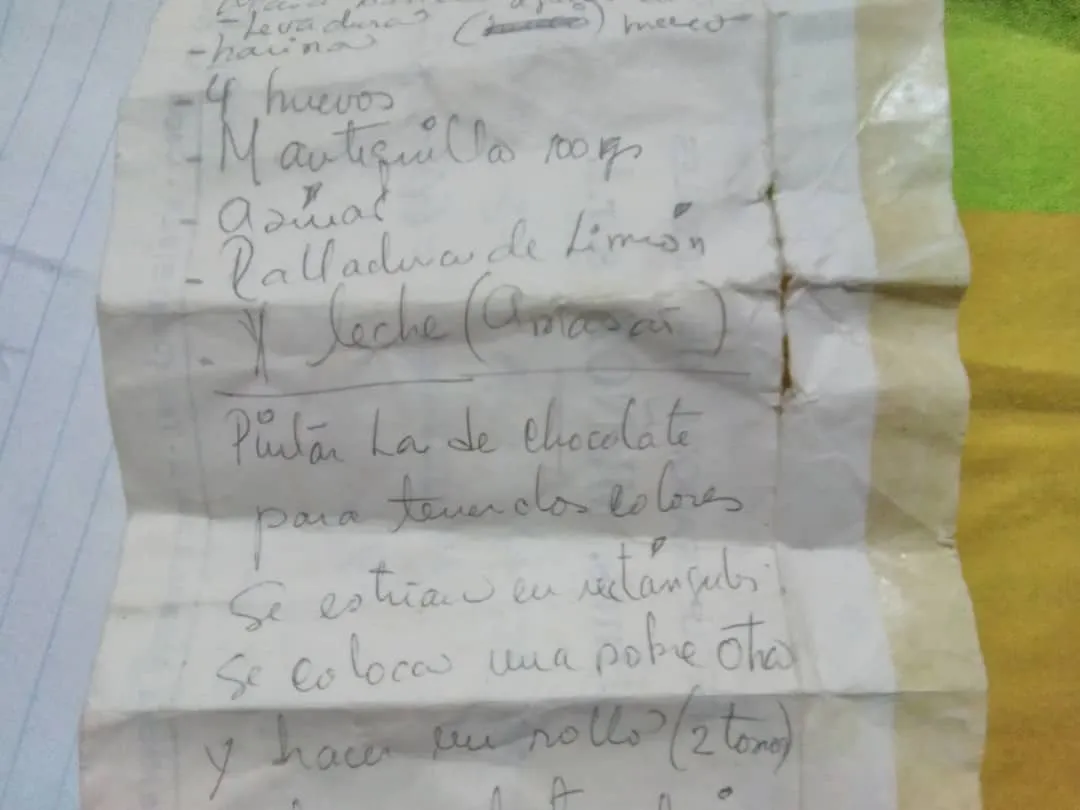 - Levadura
- harina
- 4 huevos
- Mantequilla 100 grs
- azúcar
- Ralladura de Limón
. Y leche (Amasar)
Pintar La de chocolate
para tener dos colores
Se estira en rectángulos.
Se coloca una sobre otra
y hacer un rollo (2 tonos)